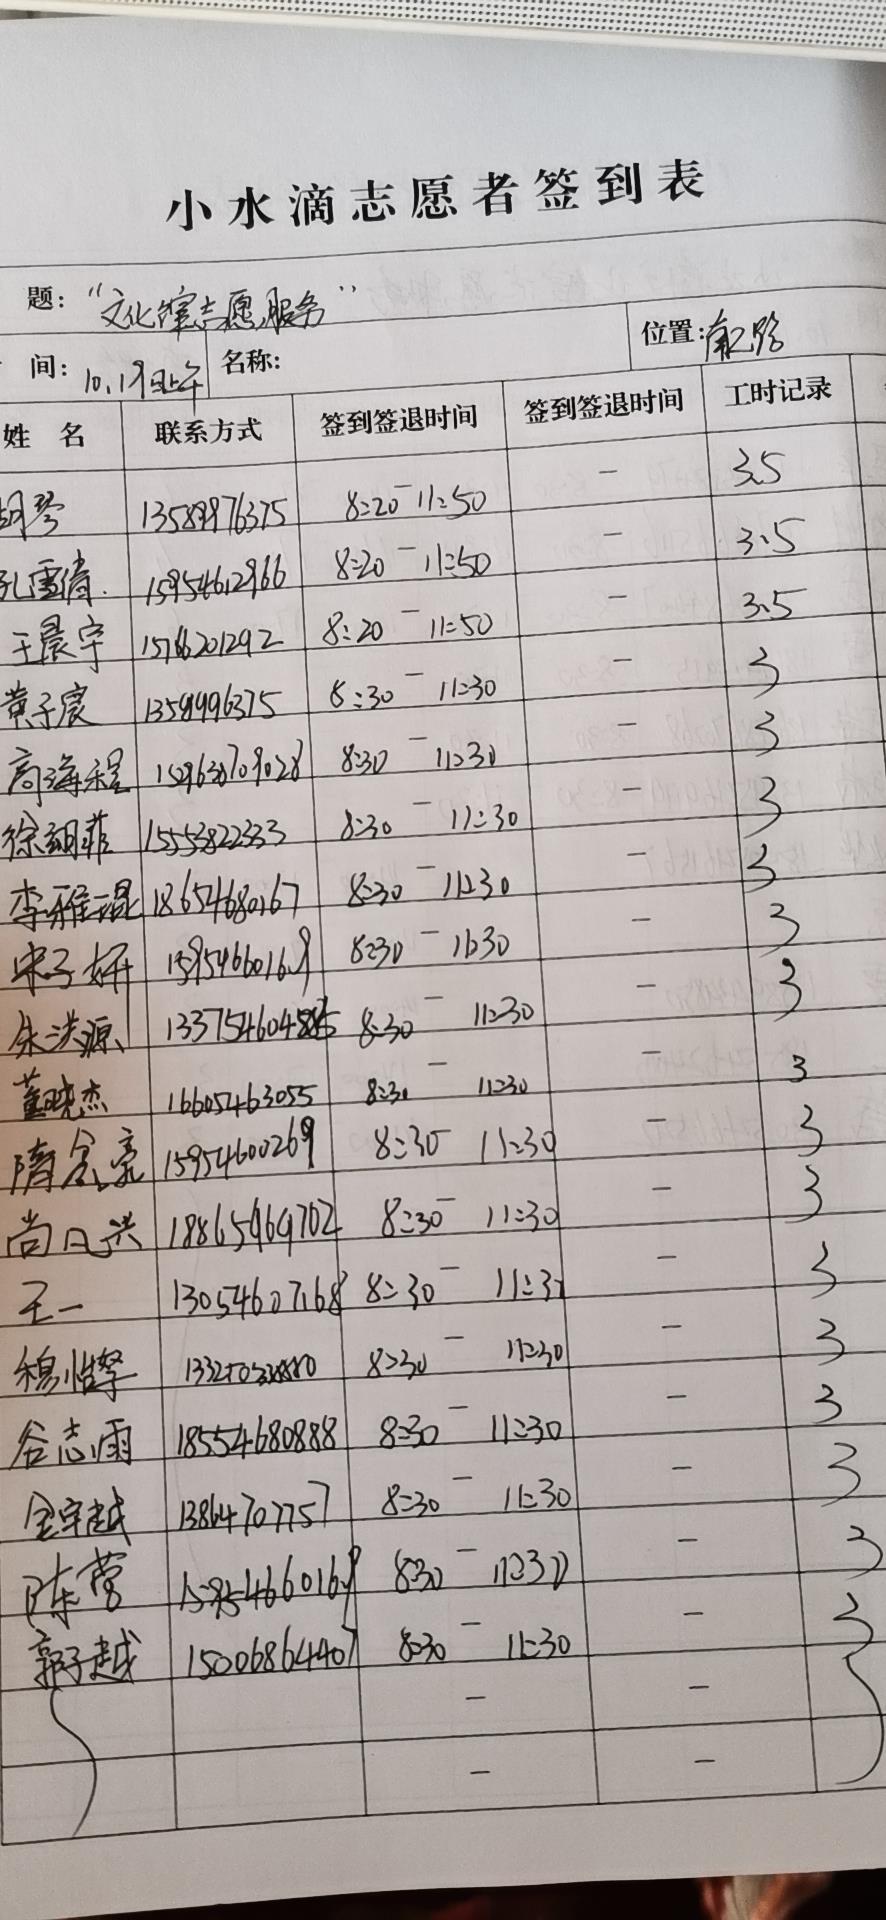 小水滴志愿者签到表
题：“文化馆志愿服务”
间：10.19日上午 名称： 位置：
姓 名 联系方式 签到签退时间 签到签退时间 工时记录
胡琴 13589976375 8:20-11:50 - 3.5
孔雪倩 15954612966 8:20-11:50 - 3.5
王晨宇 15766201292 8:20-11:50 - 3.5
黄子宸 8:30-11:30 - 3
商海程 8:30-11:30 - 3
徐翊菲 15553822333 8:30-11:30 - 3
李雅琨 18654680167 8:30-11:30 - 3
宋子妍 15954660169 8:30-11:30 - 3
朱洪源 8:30-11:30 - 3
董晓杰 16605463055 8:30-11:30 - 3
隋念豪 15954600269 8:30-11:30 - 3
尚凡洪 18865969702 8:30-11:30 - 3
王一 13054607168 8:30-11:30 - 3
穆怡擎 8:30-11:30 - 3
谷志雨 18554680888 8:30-11:30 - 3
金宇越 13864707757 8:30-11:30 - 3
陈莹 15954660169 8:30-11:30 - 3
郭子越 15006864407 8:30-11:30 - 3
- -
- -